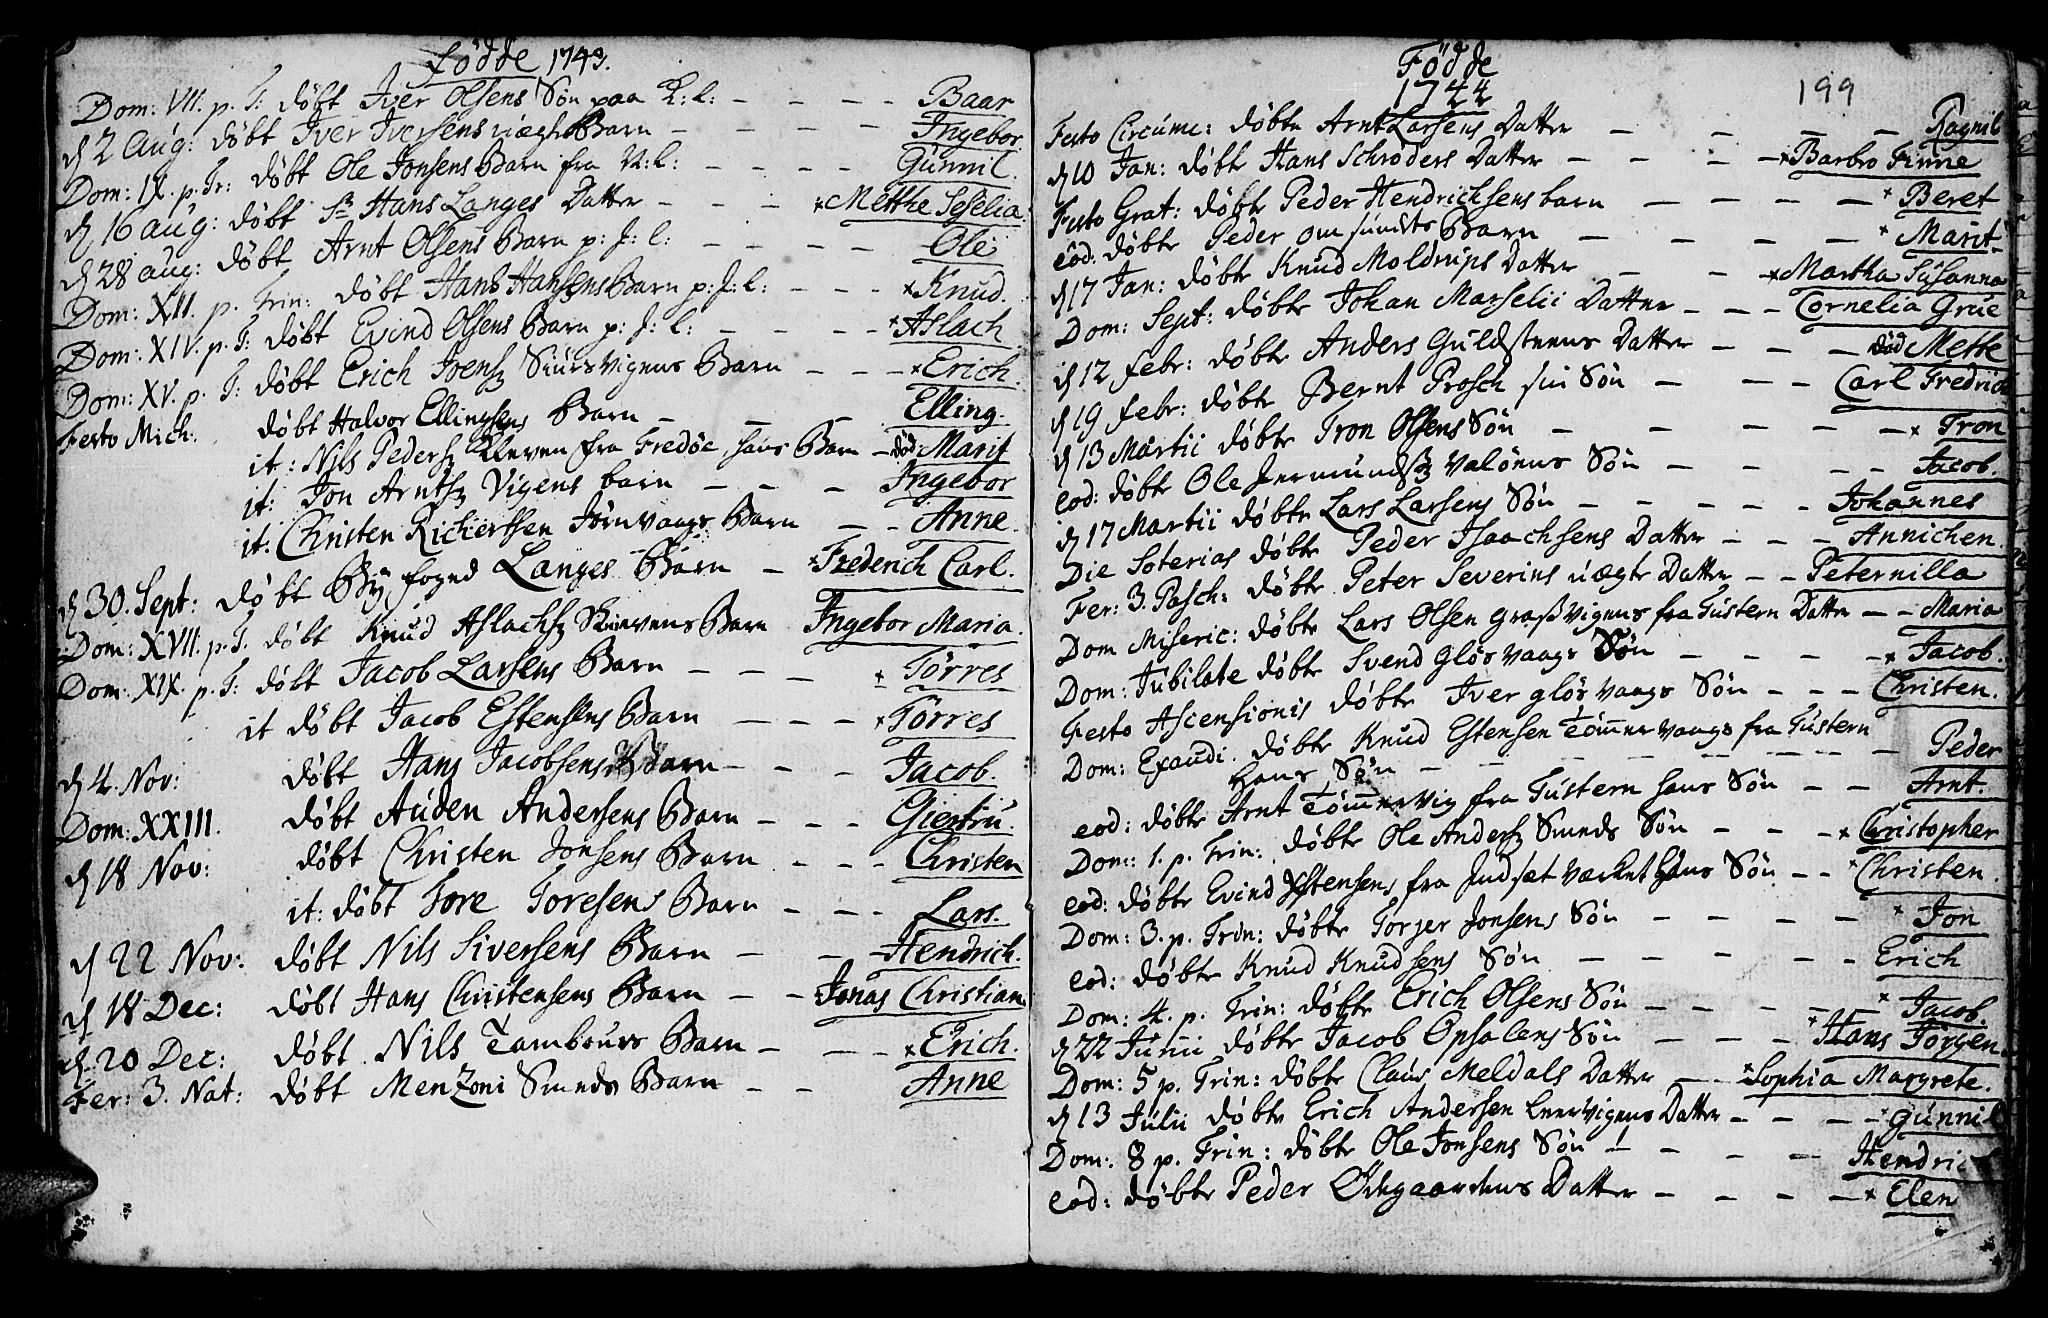 Födde 1743.
Dom: VII. p. T: døbt Iver Olsens Søn paa K: l: - - - - Baar
d 2 Aug: døbt Iver Iversens uægte Barn - - - - Ingebor
Dom: IX. p. Tr: døbt Ole Jonsens Barn fra N: l: - - - - Gunnil.
d 16 aug: døbt Sr Hans Langes Datter - - - ×Metthe Seselia
d 28 aug: døbt Arnt Olsens Barn p: J: l: - - - - Ole
Dom: XII. p. Trin: døbt Hans Hansens Barn p: J: l: - - - ×Knud.
Dom: XIV. p. T: døbt Evind Olsens Barn p: J: l: - - - - ×Aslach
Dom: XV. p. T: døbt Erich Joens Siursvigens Barn - - - ×Erich.
Festo Mich: døbt Halvor Ellingsens Barn - - - Elling.
it: Nils Peders Kleven fra Fredöe, hans Barn - død Marit
it: Jon Arnts Vigens barn - - - Ingebor
it: Christen Richertsen Jörnvaags Barn - - Anne.
d 30. Sept: døbt Byfoged Langes Barn - ×Frederich Carl.
Dom: XVII. p. T. døbt Knud Aslachs Barn Ingebor Maria.
Dom: XIX. p. T: døbt Jacob Larsens Barn - - - × Törres
it døbt Jacob Estensens Barn - - - ×Törres
d 4. Nov: døbt Hans Jacobsens Barn - - - Jacob.
Dom: XXIII. døbt Auden Andersens Barn - - - Giertru.
d 18 Nov: døbt Christen Jonsens Barn - - - Christen
it: døbt Tore Toresens Barn - - - Lars.
d 22 Nov: døbt Nils Siversens Barn - - - Hendrich.
d 18 Dec: døbt Hans Christensens Barn - - Jonas Christian
d. 20 Dec: døbt Nils Tambours Barn - - - ×Erich.
Fer: 3. Nat: døbt Menzoni Smeds Barn - - Anne
Födde
1744
199
Festo Circumc: døbte Arnt Larsens Datter - - - - Ragnil
d 10 Jan: døbt Hans Schröders Datter - - - - ×Barbro Finne
Festo Grat: døbte Peder Hendrichsens barn - - - - × Beret
eod: døbte Peder Barn - - - - × Marit
d 17 Jan: døbte Knud Moldrups Datter - - ×Martha Susanna
Dom: Sept: døbte Johan Marselii Datter - - - Cornelia Grue
d 12 Febr: døbte Anders Guldsteens Datter - - - død Mette
d 19 Febr: døbte Bernt Prosch sin Søn - - - Carl Fredrich
d 13 Martii døbte Tron Olsens Søn - - - - × Tron
eod: døbte Ole Valöens Søn - - - - Jacob.
d 17 Martii døbte Lars Larsens Søn - - - - Johannes
Die Soterias døbte Peder Isaachsens Datter - - - Annichen
Fer: 3. Pasch: døbte Peter Severins uægte Datter - - Peternilla
Dom Miseric: døbte Lars Olsen Grassvigens fra Tustern Datter - - Maria
Dom: Jubilate døbte Svend Glösvaags Søn - - - - × Jacob.
Festo Ascensionis døbte Iver Glösvaags Søn - - - Christen.
Dom: Exaudi. døbte Knud Estensen Tömmervaags fra Tustern
Hans Søn - - - - - - - - Peder
eod: døbte Arnt Tömmervig fra Tustern hans Søn - - Arnt.
Dom: 1. p. Trin: døbte Ole Anders Smeds Søn - - - × Christopher
eod: døbte Evind Estensens fra Indset værket hans Søn - - × Christen.
Dom: 3. p. Trin: døbte Torger Jonsens Søn - - - - × Jon
eod: døbte Knud Knudsens Søn - - - - Erich
Dom: 4. p. Trin: døbte Erich Olsens Søn - - - - × Jacob.
d 22 Junii døbte Jacob Opsalens Søn - - - × Hans Jörgen
Dom: 5 p. Trin: døbte Claus Meldals Datter - - ×Sophia Margrete.
d 13 Julii døbte Erich Andersen Leervigens Datter - - - × Gunnil
Dom: 8 p. Trin: døbte Ole Jonsens Søn - - - - Hendrich
eod: døbte Peder Ødegaardens Datter - - - - × Elen